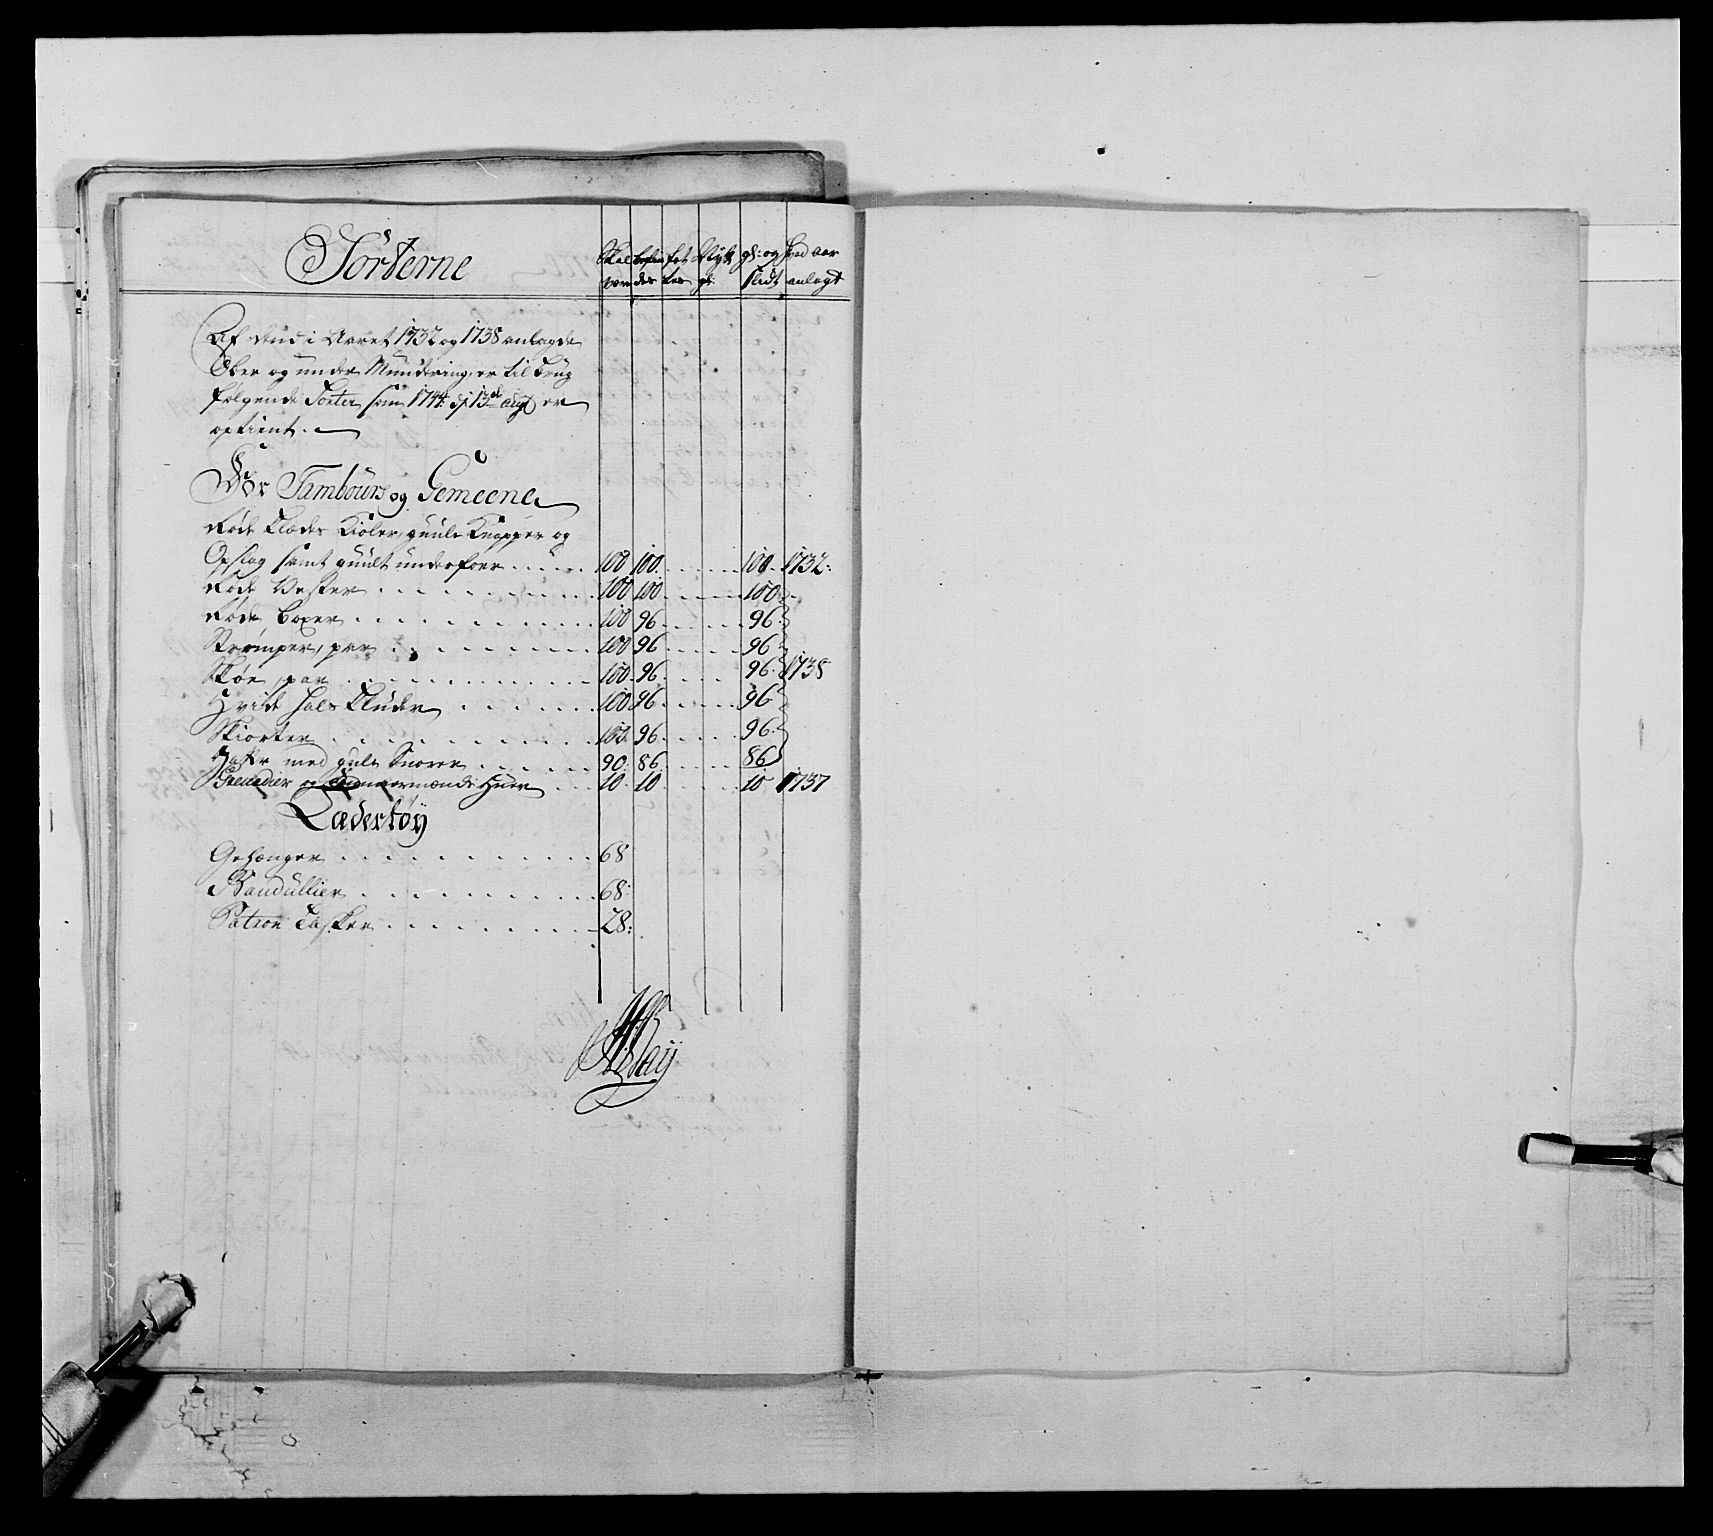 Sorterne Skal være befindes fattes Nytt gl: gl: og slidt hvad aar anlagt
Af dend i Aaret 1732 og 1738 anlagde
Ober og under Mundering, er til brug
følgende Sorter som 1744 d 13de Augt er
eftient.
For Tambours og Gemeene
Røde Klædes Kioler, guule Knapper og
Opslag samt guult underfoer 100 100 100 1732:
Røde Vester 100 100 100
Røde boxer 100 96 96
Strømper, par 100 96 96
Skoe, par 100 96 96 1738
Hvide hals Kluder 100 96 96
Skiorter 100 96 96
Hatte med gule Snorer 90 86 86
Grenadier og Tømmermænds Huer 10 10 10 1737
Lædertøy
Gehænger 68
Bandullier 68
Patron Tasker 28: